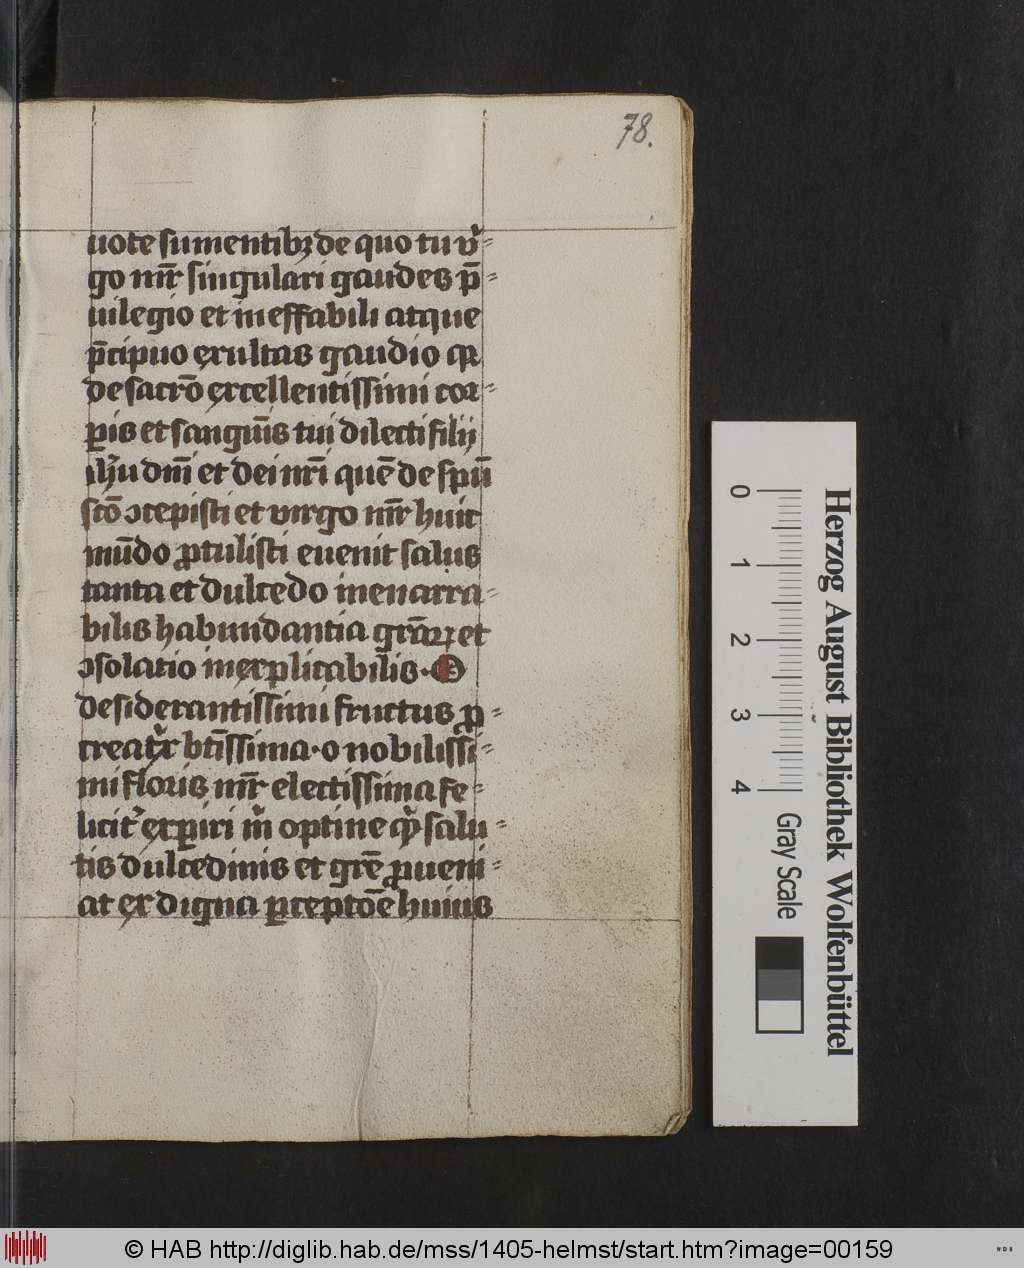 78.
uote sumentibꝫ de quo tu v̓-
go mr̄ singulari gaudes p̄-
uilegio et ineffabili atque
p̄cipuo exultas gaudio qꝛ
de sacrō excellentissimi cor-
ꝑis et sanguīs tui dilecti filij
ihū dn̄i et dei nr̄i quē de spū
scō ↄcepisti et virgo mr̄ huic
mūdo ꝓtulisti euenit salus
tanta et dulcedo inenarra-
bilis habundantia gr̄aꝝ et
ↄsolatio inexplicabilis. O
desiderantissimi fructus ꝓ-
creat̓x bt̄issima. o nobilissi-
mi floris mr̄ electissima fe-
licit̓ exꝑiri m̓ optine qͥ salu-
tis dulcedinis et gr̄e ꝓueni-
at ex digna ꝑceptōe huius
0 1 2 3 4
Gray Scale
Herzog August Bibliothek Wolfenbüttel
© HAB http://diglib.hab.de/mss/1405-helmst/start.htm?image=00159